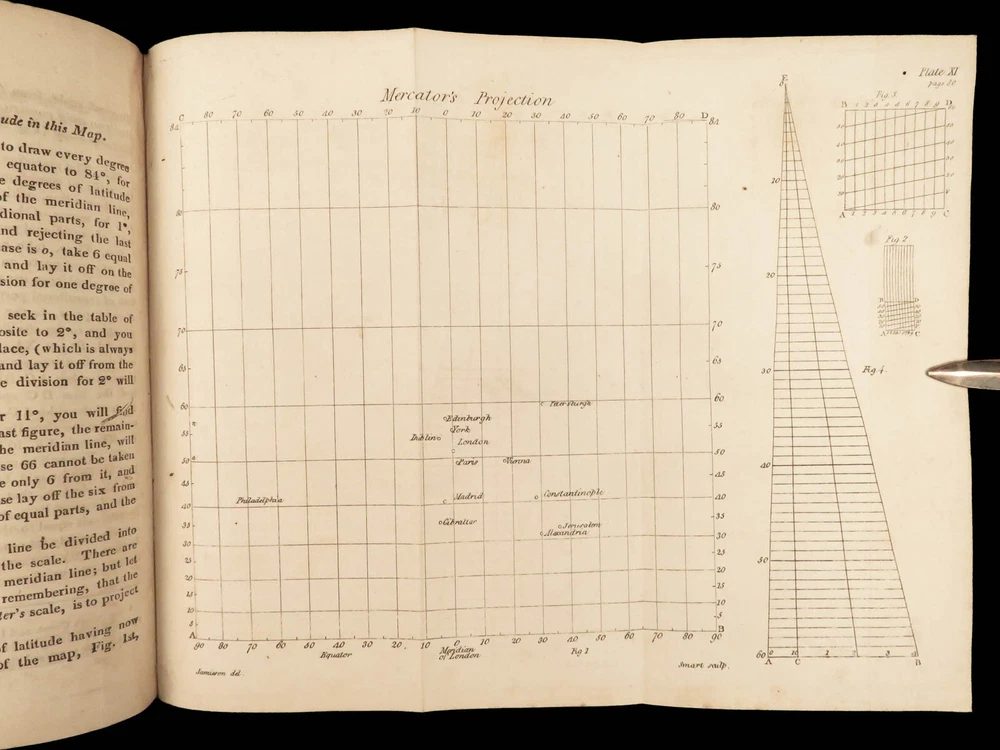 ude in this Map.
to draw every degree
equator to 84°, for
e degrees of latitude
of the meridian line,
dional parts, for 1°,
nd rejecting the last
ase is 0, take 6 equal
and lay it off on the
sion for one degree of
seek in the table of
osite to 2°, and you
lace, (which is always
and lay it off from the
e division for 2° will
r 11°, you will find
ast figure, the remain-
he meridian line, will
se 66 cannot be taken
e only 6 from it, and
se lay off the six from
of equal parts, and the
line be divided into
the scale. There are
meridian line; but let
remembering, that the
ter's scale, is to project
of latitude having now
of the map, Fig. 1st,
Plate XI
page 80
Mercator's Projection
C 80 70 60 50 40 30 20 10 10 20 30 40 50 60 70 80 D
84 84
80 80
75 75
70 70
65 65
60 60
55 55
50 50
45 45
40 40
35 35
30 30
25 25
20 20
15 15
10 10
5 5
A B
90 80 70 60 50 40 30 20 10 0 10 20 30 40 50 60 70 80 90
Petersburgh
Edenburgh
York
Dublin
London
Paris
Vienna
Philadelphia
Madrid
Constantinople
Gibralter
Jerusalem
Alexandria
Equator
Meridian
of London
Fig 1
Jamieson del.
Smart sculp.
10
20
30
40
50
60
A C B
Fig 4
Fig. 3.
B 1 2 3 4 5 6 7 8 9 D
A 1 2 3 4 5 6 7 8 9 C
Fig 2